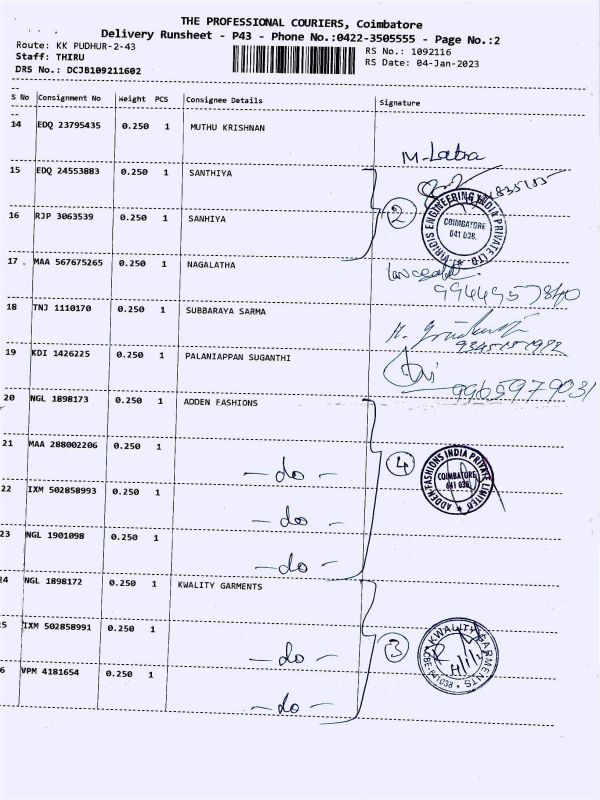 THE PROFESSIONAL COURIERS, Coimbatore
Delivery Runsheet - P43 - Phone No.:0422-3505555 - Page No.:2
Route: KK PUDHUR-2-43
RS No.: 1092116
Staff: THIRU
RS Date: 04-Jan-2023
DRS No.: DCJB109211602
S No Consignment No Weight PCS Consignee Details Signature
14 EDQ 23795435 0.250 1 MUTHU KRISHNAN
M-Latha
15 EDQ 24553883 0.250 1 SANTHIYA
16 RJP 3063539 0.250 1 SANHIYA
2
VIRIDIUS ENGINEERING INDIA PRIVATE LTD
COIMBATORE
641 038.
17 MAA 567675265 0.250 1 NAGALATHA
9944957840
18 TNJ 1110170 0.250 1 SUBBARAYA SARMA
19 KDI 1426225 0.250 1 PALANIAPPAN SUGANTHI
9965979031
20 NGL 1898173 0.250 1 ADDEN FASHIONS
21 MAA 288002206 0.250 1 - do -
4
ADDEN FASHIONS INDIA PRIVATE LIMITED
COIMBATORE
641 038.
22 IXM 502858993 0.250 1 - do -
23 NGL 1901098 0.250 1 - do -
24 NGL 1898172 0.250 1 KWALITY GARMENTS
5 IXM 502858991 0.250 1 - do -
3
KWALITY GARMENTS
CBE-641038
6 VPM 4181654 0.250 1 - do -